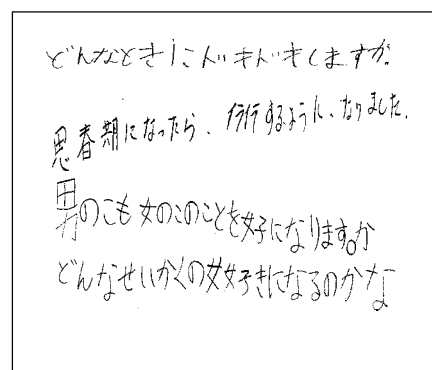 どんなときにドキドキしますか。
思春期になったら、イライラするように、なりました。
男のこも女のこのことを好になります。か
どんなせいかくの女好きになるのかな